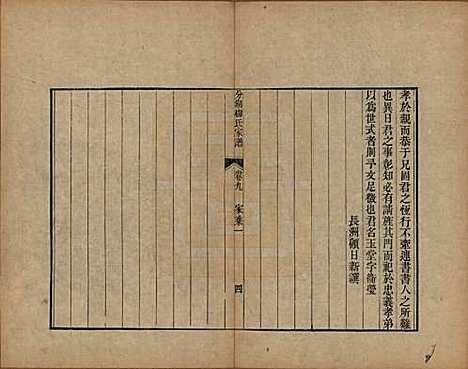 孝於親而恭于兄固君之恆行不牽連書書人之所難
也異日君之事彰知必有請旌其門而祀於忠義孝弟
以爲世式者則予文足徵也君名玉堂字衞瑩
長洲顧日新譔
分湖柳氏家譜
卷九
家乘一
四